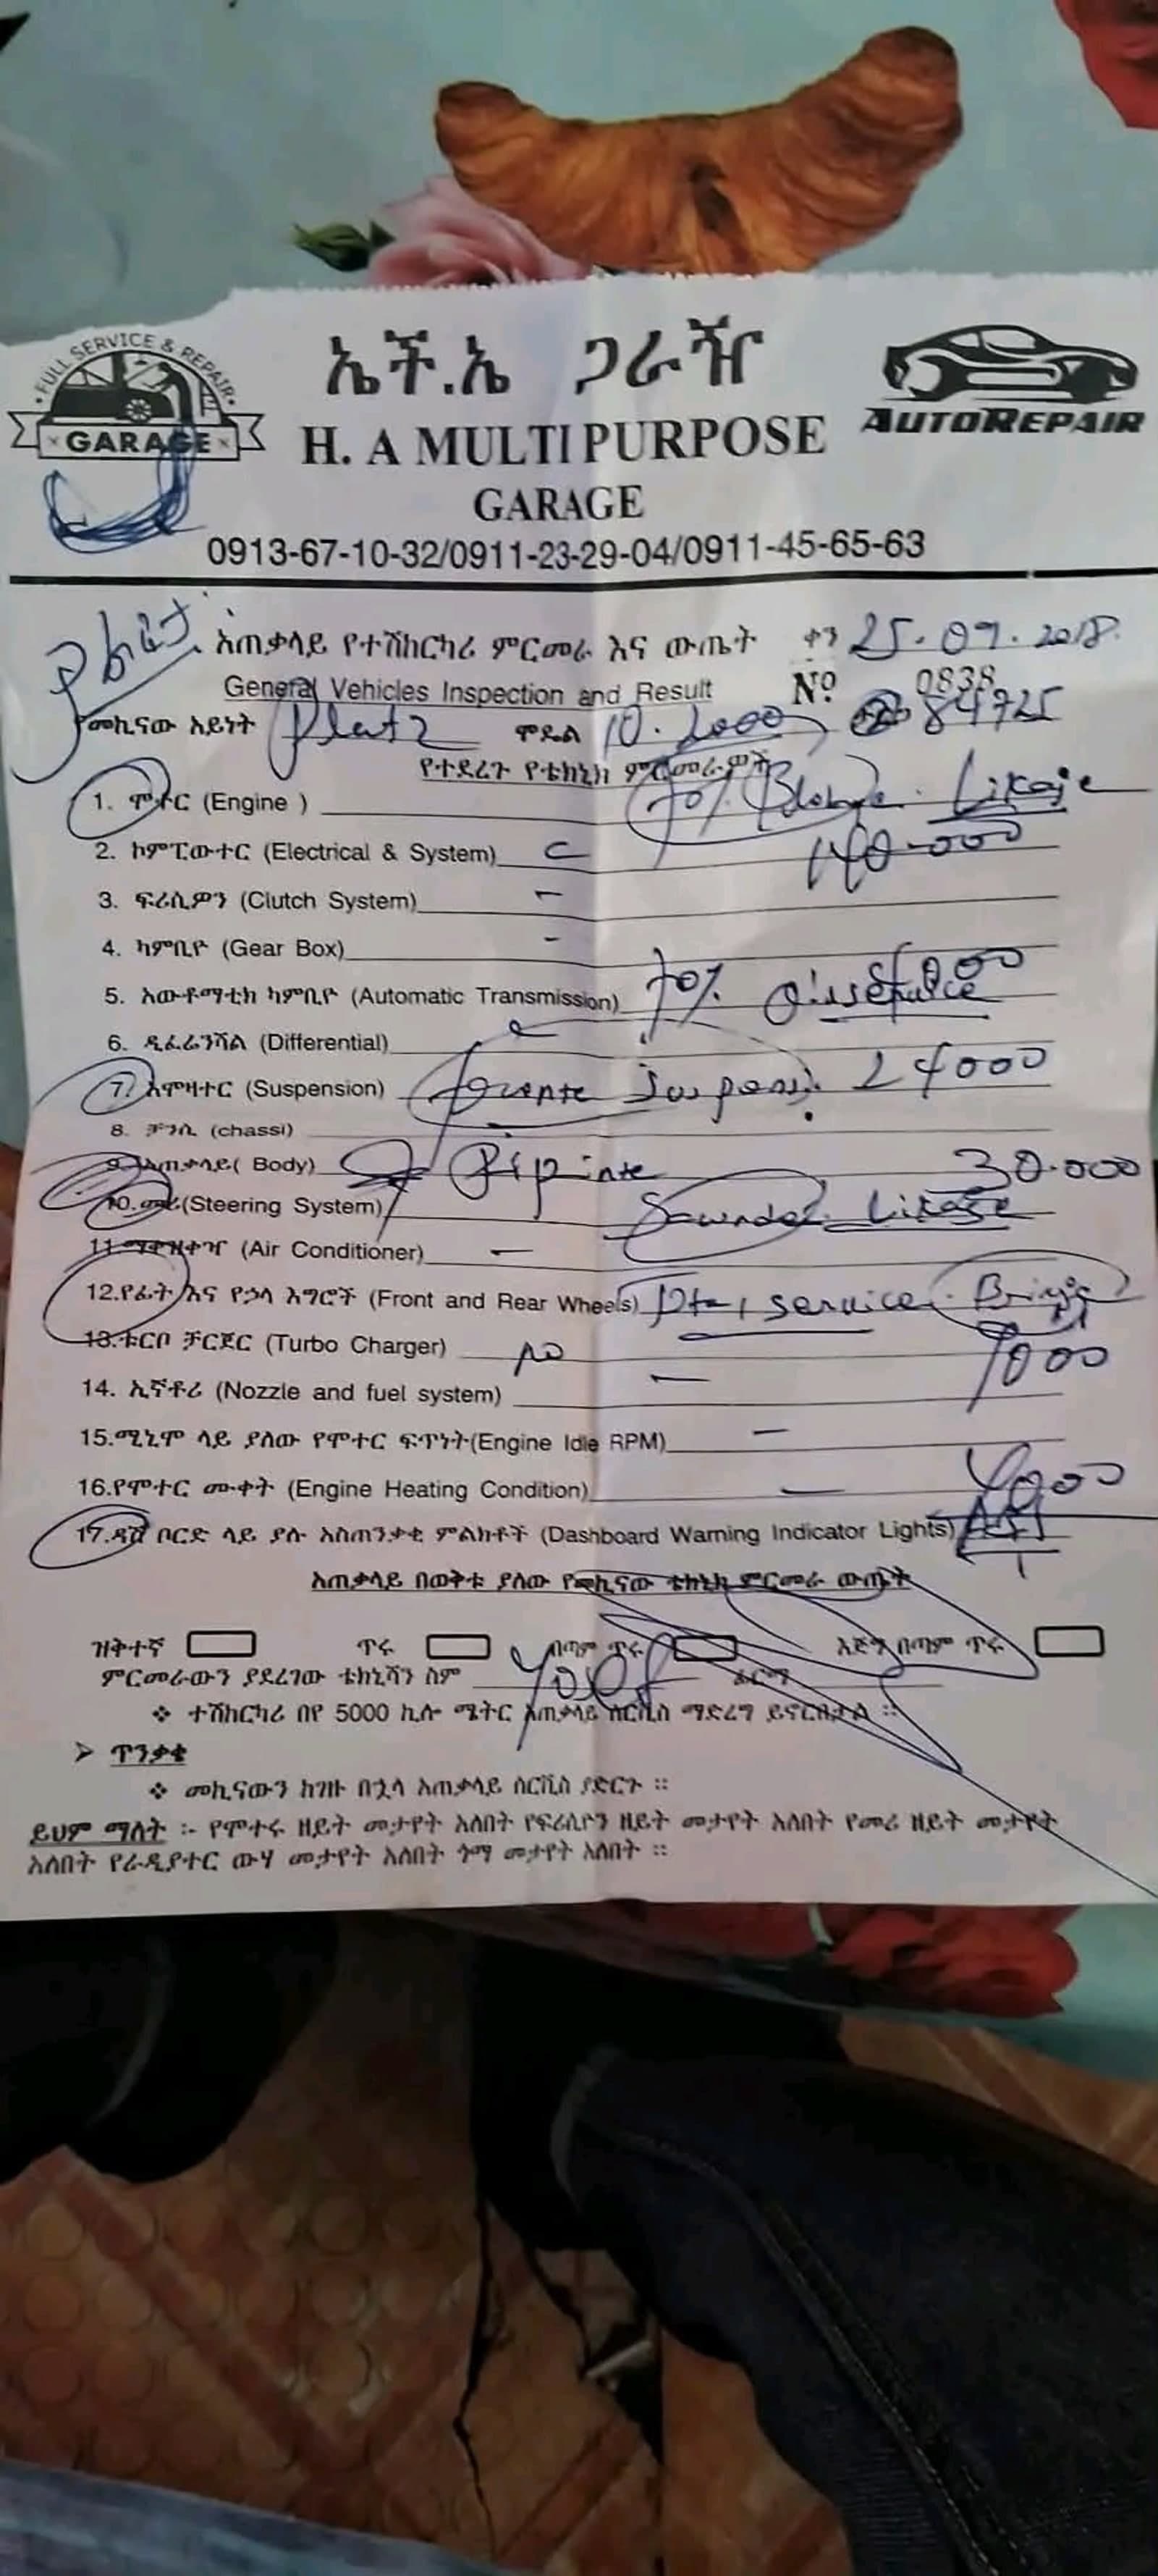 FULL SERVICE & REPAIR
GARAGE
ኤች.ኤ ጋራዥ
AUTOREPAIR
H. A MULTI PURPOSE
GARAGE
0913-67-10-32/0911-23-29-04/0911-45-65-63
አጠቃላይ የተሽከርካሪ ምርመራ እና ውጤት ቀን 25.09.2018
General Vehicles Inspection and Result Nº 0838
የመኪናው አይነት Platz ሞዴል 10.2000 84725
የተደረጉ የቴክኒክ ምርመራዎች
1. ሞተር (Engine ) 70% Likaje
2. ኮምፒውተር (Electrical & System) 140.000
3. ፍሪሲዎን (Clutch System) -
4. ካምቢዮ (Gear Box) -
5. አውቶማቲክ ካምቢዮ (Automatic Transmission) 70% service
6. ዲፈሬንሻል (Differential)
7. አሞዛተር (Suspension) Fronte Suspens. 24000
8. ቻንሲ (chassi)
9. አጠቃላይ( Body) Ripinte 30.000
10. መሪ (Steering System) Likage
11. ማቀዝቀዣ (Air Conditioner) -
12.የፊት እና የኃላ እግሮች (Front and Rear Wheels) service
13.ቱርቦ ቻርጀር (Turbo Charger) no 9000
14. ኢኛቶሪ (Nozzle and fuel system) -
15.ሚኒሞ ላይ ያለው የሞተር ፍጥነት(Engine Idle RPM) -
16.የሞተር ሙቀት (Engine Heating Condition) -
17.ዳሽ ቦርድ ላይ ያሉ አስጠንቃቂ ምልክቶች (Dashboard Warning Indicator Lights)
አጠቃላይ በወቅቱ ያለው የመኪናው ቴክኒክ ምርመራ ውጤት
ዝቅተኛ ጥሩ በጣም ጥሩ እጅግ በጣም ጥሩ
ምርመራውን ያደረገው ቴክኒሻን ስም Yosef ፊርማ
❖ ተሽከርካሪ በየ 5000 ኪሎ ሜትር አጠቃላይ ሰርቪስ ማድረግ ይኖርበታል ።
➢ ጥንቃቄ
❖ መኪናውን ከገዙ በኋላ አጠቃላይ ሰርቪስ ያድርጉ ።
ይህም ማለት :- የሞተሩ ዘይት መታየት አለበት የፍሪሲዮን ዘይት መታየት አለበት የመሪ ዘይት መታየት
አለበት የራዲያተር ውሃ መታየት አለበት ጎማ መታየት አለበት ።